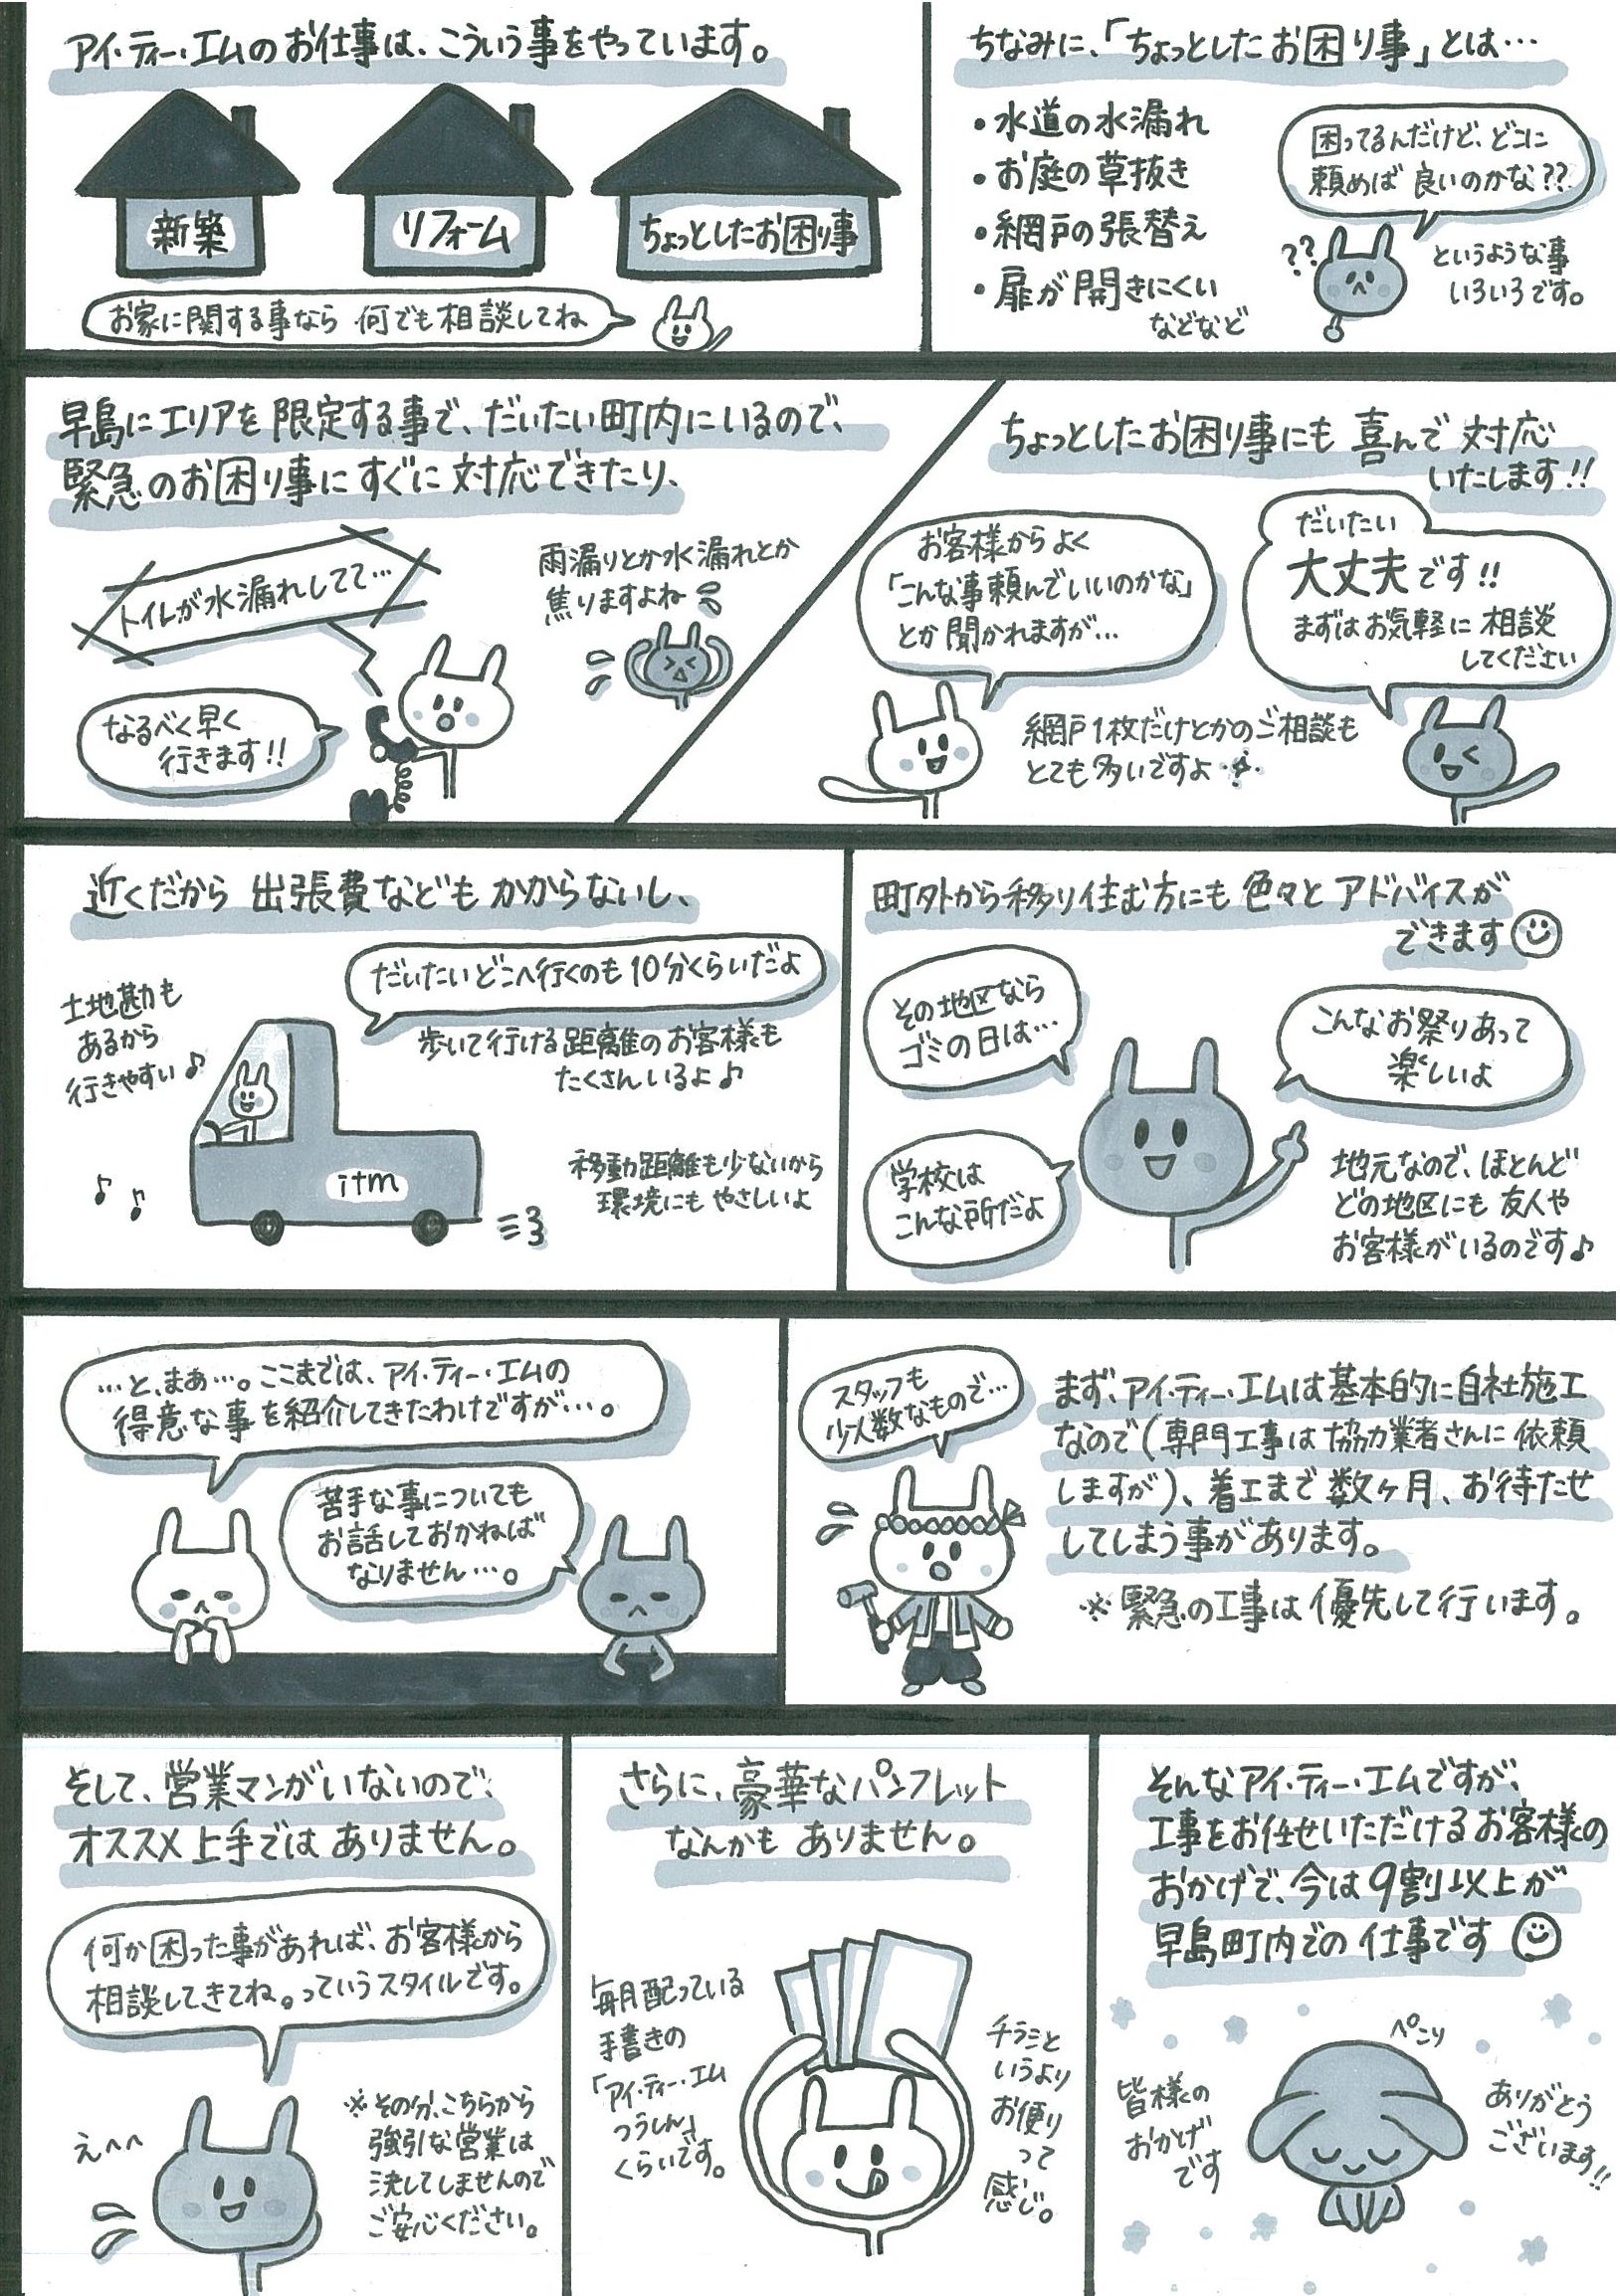 アイ・ティー・エムのお仕事は、こういう事をやっています。
新築
リフォーム
ちょっとしたお困り事
お家に関する事なら 何でも相談してね
ちなみに、「ちょっとしたお困り事」とは…
・水道の水漏れ
・お庭の草抜き
・網戸の張替え
・扉が開きにくい
などなど
困ってるんだけど、どこに
頼めば 良いのかな??
??
というような事
いろいろです。
早島にエリアを限定する事で、だいたい町内にいるので、
緊急のお困り事にすぐに対応できたり、
トイレが水漏れしてて…
雨漏りとか水漏れとか
焦りますよね
なるべく早く
行きます!!
ちょっとしたお困り事にも 喜んで対応
いたします!!
お客様からよく
「こんな事頼んでいいのかな」
とか聞かれますが…
だいたい
大丈夫です!!
まずはお気軽に相談
してください
網戸1枚だけとかのご相談も
とても多いですよ
近くだから 出張費などもかからないし、
だいたいどこへ行くのも10分くらいだよ
土地勘も
あるから
行きやすい♪
歩いて行ける距離のお客様も
たくさんいるよ♪
itm
移動距離も少ないから
環境にもやさしいよ
町外から移り住む方にも 色々とアドバイスが
できます
その地区なら
ゴミの日は…
こんなお祭りあって
楽しいよ
学校は
こんな所だよ
地元なので、ほとんど
どの地区にも友人や
お客様がいるのです♪
…と、まぁ…。ここまでは、アイ・ティー・エムの
得意な事を紹介してきたわけですが…。
苦手な事についても
お話しておかねば
なりません…。
スタッフも
少人数なもので…
まず、アイ・ティー・エムは基本的に自社施工
なので(専門工事は協力業者さんに依頼
しますが)、着工まで数ヶ月、お待たせ
してしまう事があります。
※緊急の工事は優先して行います。
そして、営業マンがいないので、
オススメ上手ではありません。
何か困った事があれば、お客様から
相談してきてね。っていうスタイルです。
えへへ
※その分、こちらから
強引な営業は
決してしませんので
ご安心ください。
さらに、豪華なパンフレット
なんかもありません。
毎月配っている
手書きの
「アイ・ティー・エム
つうしん」
くらいです。
チラシと
いうより
お便り
って
感じ。
そんなアイ・ティー・エムですが、
工事をお任せいただけるお客様の
おかげで、今は9割以上が
早島町内での仕事です
ペこり
皆様の
おかげ
です
ありがとう
ございます!!